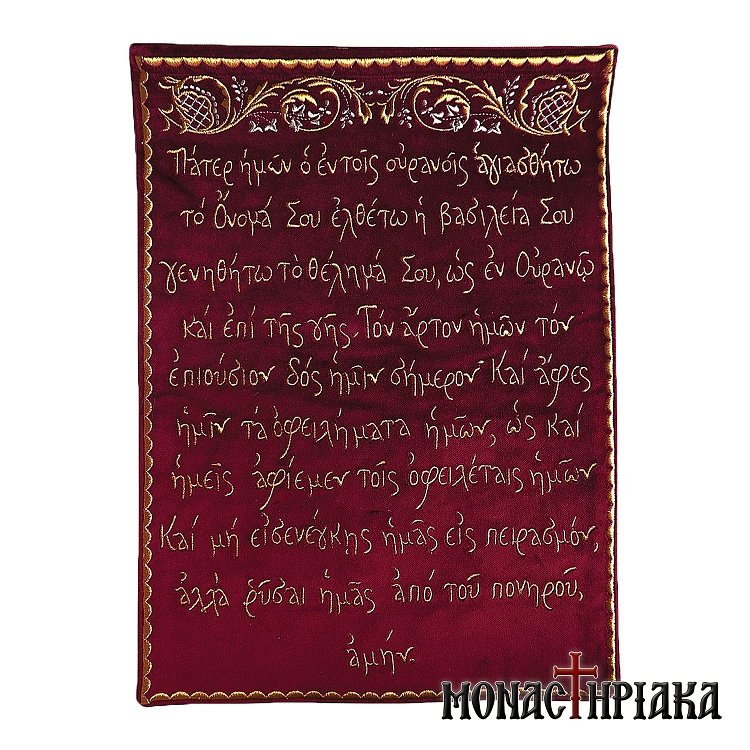 Πάτερ ἡμῶν ὁ ἐν τοῖς οὐρανοῖς ἁγιασθήτω
τό Ὄνομά Σου ἐλθέτω ἡ βασιλεία Σου
γενηθήτω τό θέλημά Σου, ὡς ἐν Οὐρανῷ
καί ἐπί τῆς γῆς. Τόν ἄρτον ἡμῶν τόν
ἐπιούσιον δός ἡμῖν σήμερον Καί ἄφες
ἡμῖν τά ὀφειλήματα ἡμῶν, ὡς καί
ἡμεῖς ἀφίεμεν τοῖς ὀφειλέταις ἡμῶν
Καί μή εἰσενέγκῃς ἡμᾶς εἰς πειρασμόν,
ἀλλά ρῦσαι ἡμᾶς ἀπό τοῦ πονηροῦ,
ἀμήν.
ΜΟΝΑСΤΗΡΙΑΚΑ